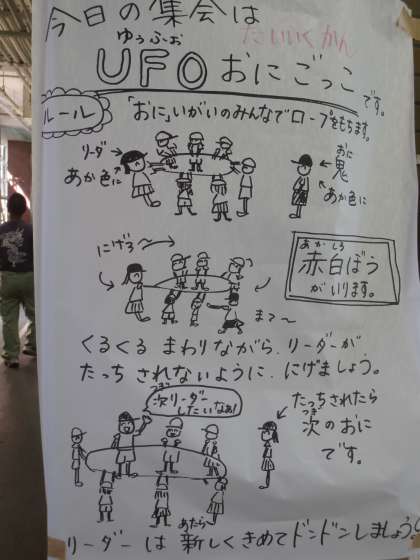 今日の集会は
たいいくかん
ゆうふぉお
UFOおにごっこ
です。
ルール
「おに」いがいのみんなでロープをもちます。
リーダー
あか色に
おに
鬼
あか色に
にげろ〜
まて〜
あか しろ
赤白ぼう
がいります。
くるくる まわりながら、リーダーが
たっち されないように、にげましょう。
つぎ
次リーダー
したいなぁ!
たっちされたら
つぎ
次のおに
です。
あたらし
リーダーは 新しくきめてドンドンしましょう